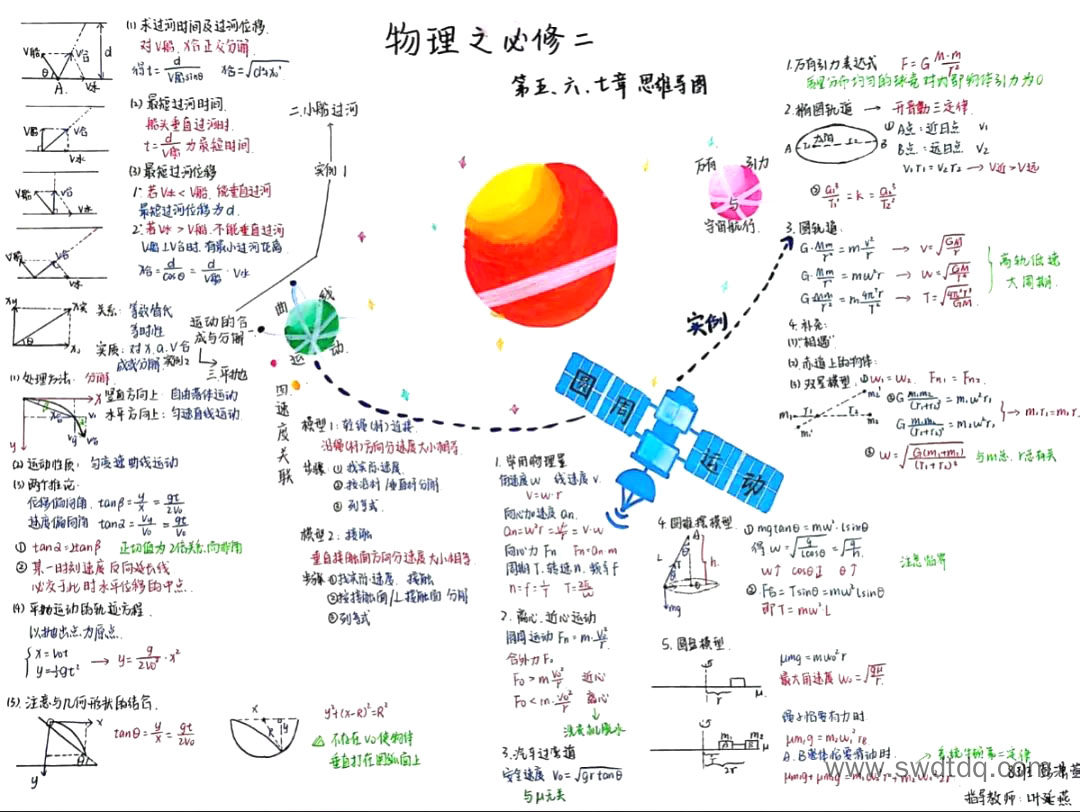 物理之必修二
第五、六、七章思维导图
(1) 求过河时间及过河位移.
对V船、X合正交分解
得t=d/V船sinθ X合=√d²+x₀²
V船
V合
V水
θ
A
d
(2) 最短过河时间.
船头垂直过河时.
t=d/V船 为最短时间.
V船
V合
V水
(3) 最短过河位移
1° 若V水<V船, 能垂直过河
最短过河位移为d.
2° 若V水>V船, 不能垂直过河
V船⊥V合时, 有最小过河距离
X合=d/cosθ=d/V船·V水
V船
V合
V水
V船
V合
V水
二.小船过河
实例1
运动的合成与分解
关系: 等效替代
等时性
实质: 对x.a.V合成或分解
实例2
三.平抛
曲线运动
(1) 处理方法: 分解
竖直方向上: 自由落体运动
水平方向上: 匀速直线运动
(2) 运动性质: 匀变速曲线运动
(3) 两个推论:
位移偏向角. tanβ=y/x=gt/2V₀
速度偏向角 tanα=Vy/V₀=gt/V₀
① tanα=2tanβ 正切值为2倍关系,而非角
② 某一时刻速度反向延长线
必交于此时水平位移的中点.
(4) 平抛运动的轨迹方程.
以抛出点为原点.
x=V₀t
y=½gt² → y=g/2V₀²·x²
(5). 注意与几何形状的结合.
tanθ=y/x=gt/2V₀
y²+(x-R)²=R²
不存在V₀使物体
垂直打在圆弧面上
四.速度关联
模型1: 轻绳(杆)连接.
沿绳(杆)方向分速度大小相等.
步骤: ①找实际速度.
②按沿杆/垂直杆分解
③列等式.
模型2: 接触
垂直接触面方向分速度大小相等.
步骤 ①找实际速度. 接触
②按接触面/⊥接触面 分解
③列等式
圆周运动
1. 常用物理量
角速度ω 线速度v.
V=ω·r
向心加速度an.
an=ω²r=v²/r=v·ω
向心力Fn Fn=an·m
周期T. 转速n. 频率f
n=f=1/T T=2π/ω
2. 离心.近心运动
圆周运动 Fn=m·V₀²/r.
合外力F₀
F₀>mV₀²/r 近心
F₀<m·V₀²/r 离心
洗衣机脱水
3. 汽车过弯道
安全速度 V₀=√grtanθ
与μ无关
4. 圆锥摆模型
① mgtanθ=mω²·lsinθ
得 ω=√g/lcosθ=√g/h.
ω↑ cosθ↓ θ↑
② F合=Tsinθ=mω²lsinθ
即T=mω²·L
注意临界
L
h
mg
5. 圆盘模型.
μmg=mω₀²r
最大角速度 ω₀=√gμ/r
绳子恰要有力时
A.B整体恰要滑动时.
系统牛顿第二定律
实例
万有引力与宇宙航行.
1. 万有引力表达式 F=G M·m/r²
质量分布均匀的球壳对内部物体引力为0
2. 椭圆轨道 → 开普勒三定律
① A点: 近日点 V₁
B点: 远日点 V₂
V₁r₁=V₂r₂ → V近>V远
② a₁³/T₁²=k=a₂³/T₂²
A
太阳
B
3. 圆轨道:
G·Mm/r²=mv²/r → V=√GM/r
G·Mm/r²=mω²r → ω=√GM/r³
G·Mm/r²=m4π²r/T² → T=√4π²r³/GM.
高轨低速
大周期.
4. 补充:
(1)"相遇"
(2). 赤道上的物体:
(3) 双星模型. ①ω₁=ω₂. Fn₁=Fn₂.
② G m₁m₂/(r₁+r₂)²=m₁ω²r₁
G m₁m₂/(r₁+r₂)²=m₂ω²r₂ → m₁r₁=m₂r₂
③ ω=√G(m₁+m₂)/(r₁+r₂)³ 与m总.r总有关
www.swdtdq.com
指导教师: 叶延燕